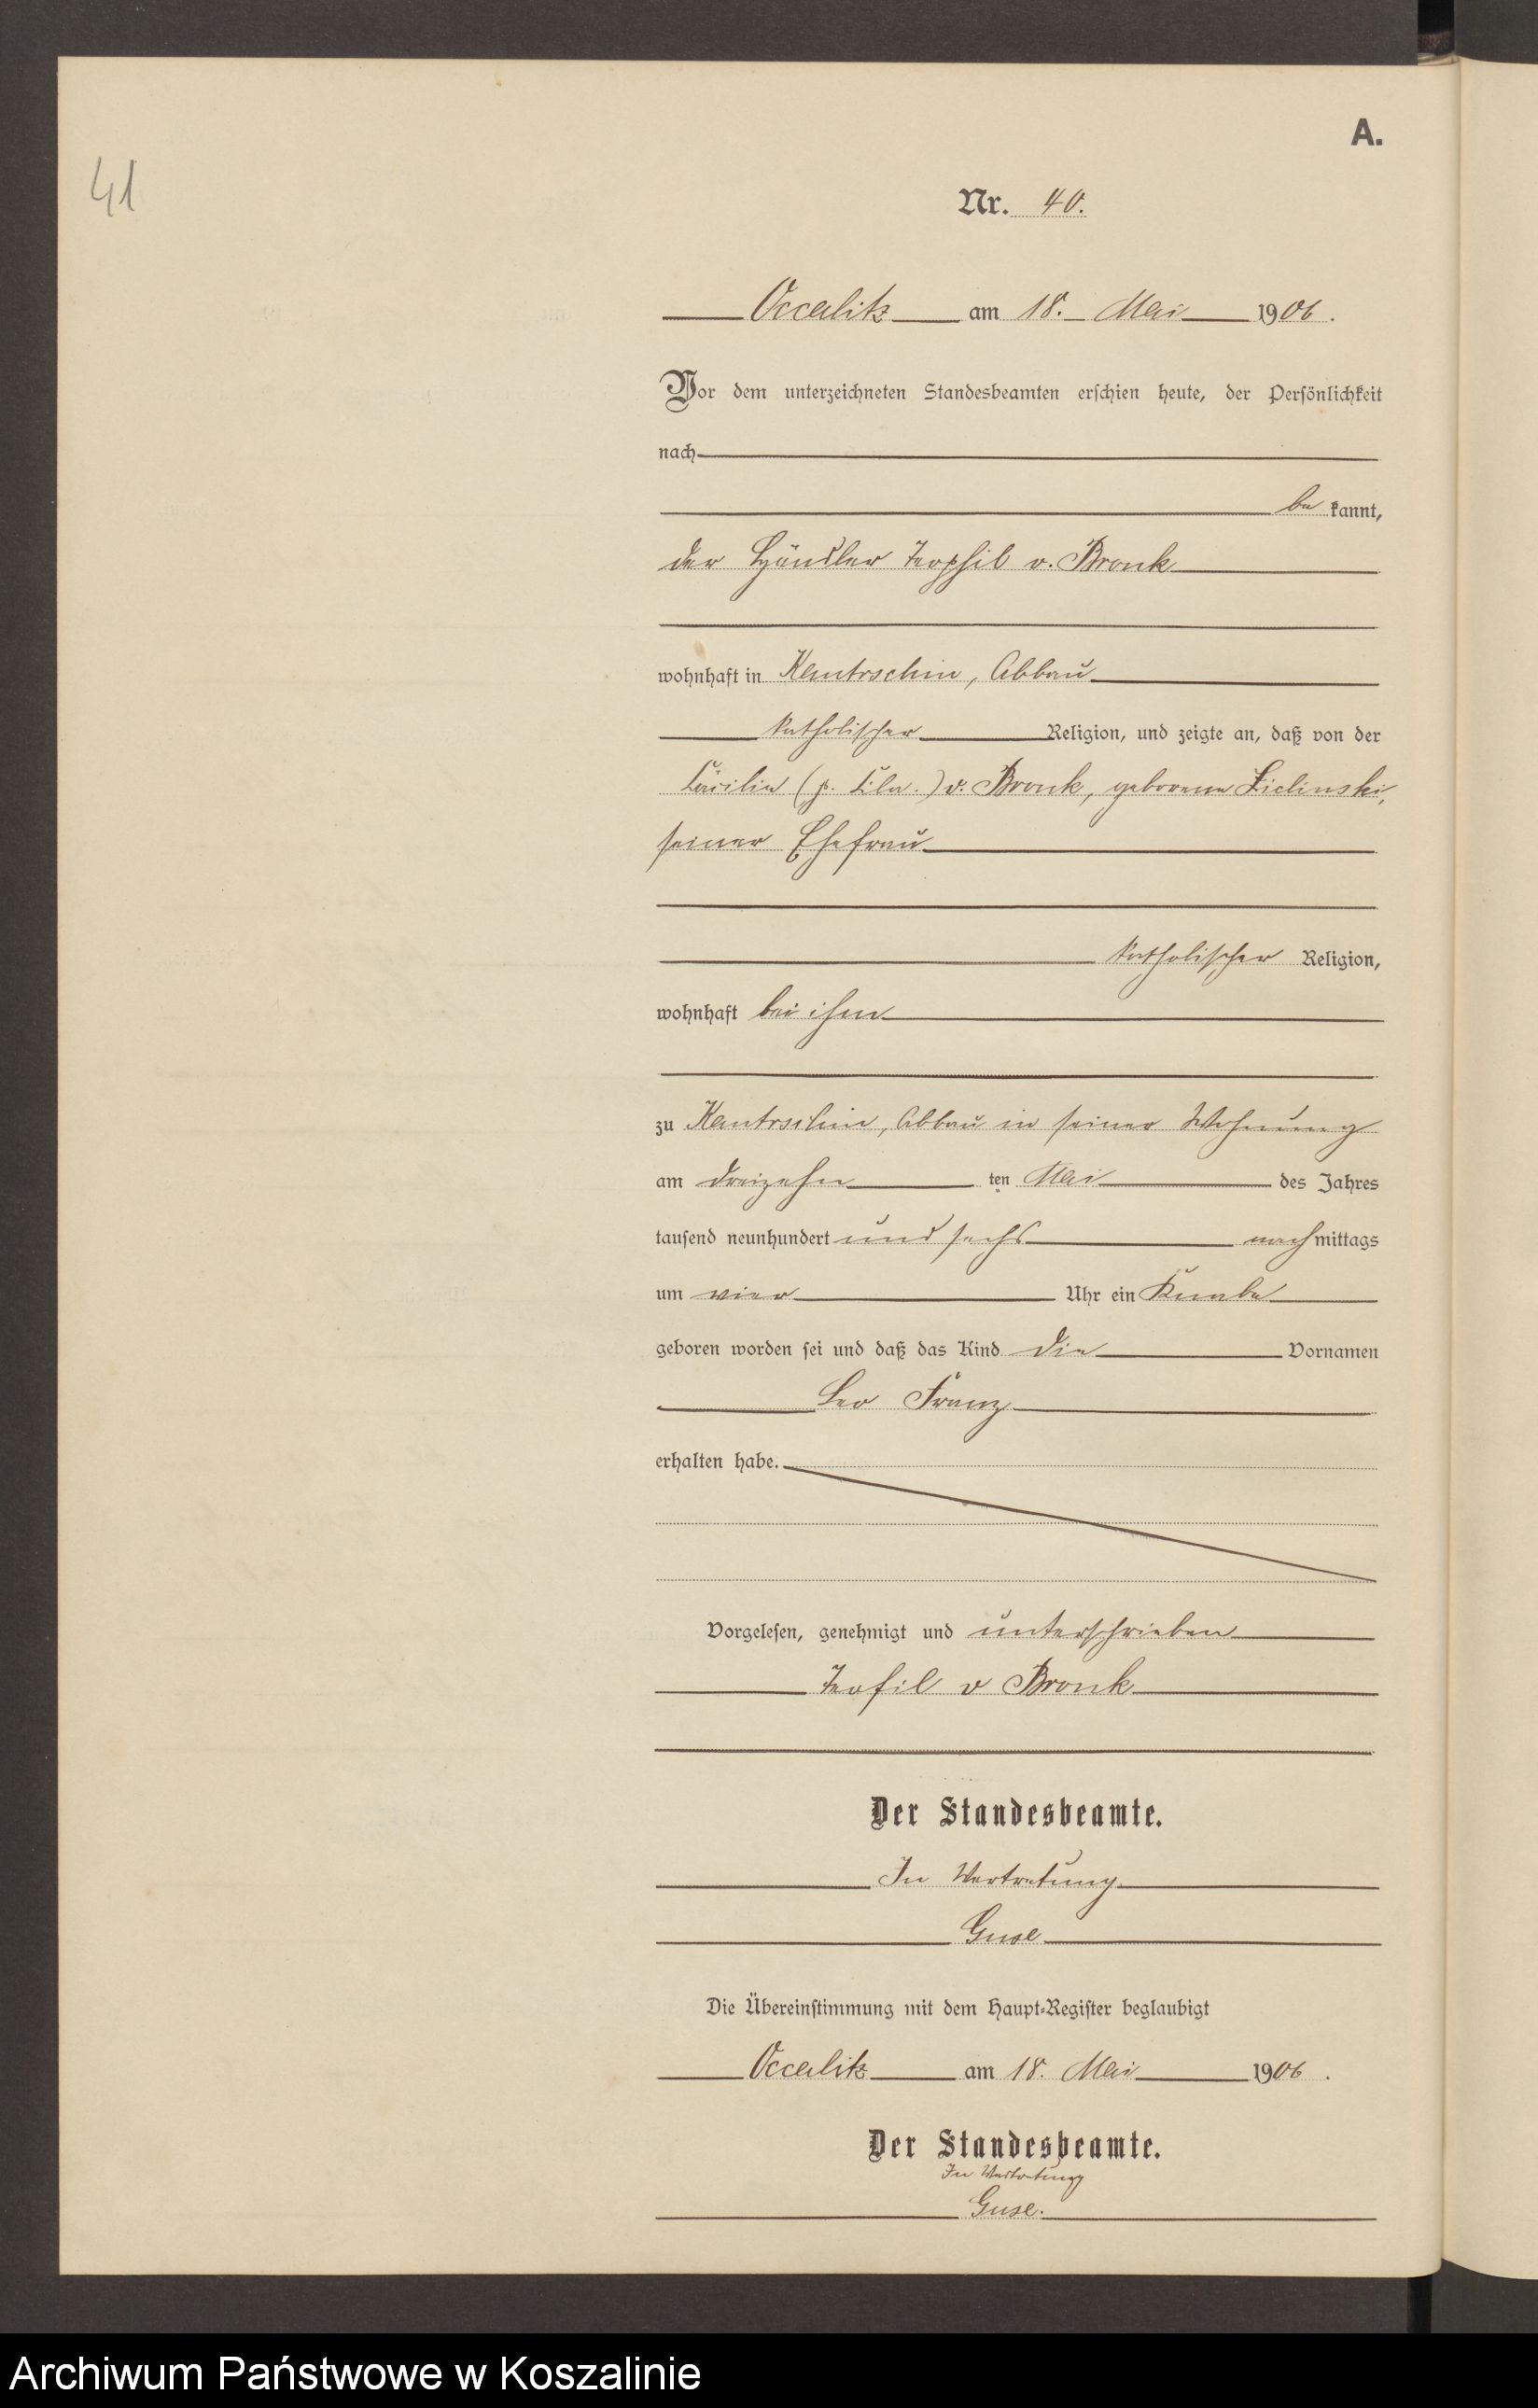 A.
41
Nr. 40.
Occalitz am 18. Mai 1906.
Vor dem unterzeichneten Standesbeamten erschien heute, der Persönlichkeit
nach
be kannt,
der Händler Teophil v. Bronk
wohnhaft in Kantrschin, Abbau
katholischer Religion, und zeigte an, daß von der
Cäcilia v. Bronk, geborene Zielinski,
seiner Ehefrau
katholischer Religion,
wohnhaft bei ihm
zu Kantrschin, Abbau in seiner Wohnung
am dreizehn ten Mai des Jahres
tausend neunhundert und sechs nach mittags
um vier Uhr ein Knabe
geboren worden sei und daß das Kind die Vornamen
Leo Franz
erhalten habe.
Vorgelesen, genehmigt und unterschrieben
Teofil v Bronk
Der Standesbeamte.
In Vertretung
Guse
Die Übereinstimmung mit dem Haupt-Register beglaubigt
Occalitz am 18. Mai 1906.
Der Standesbeamte.
In Vertretung
Guse.
Archiwum Państwowe w Koszalinie